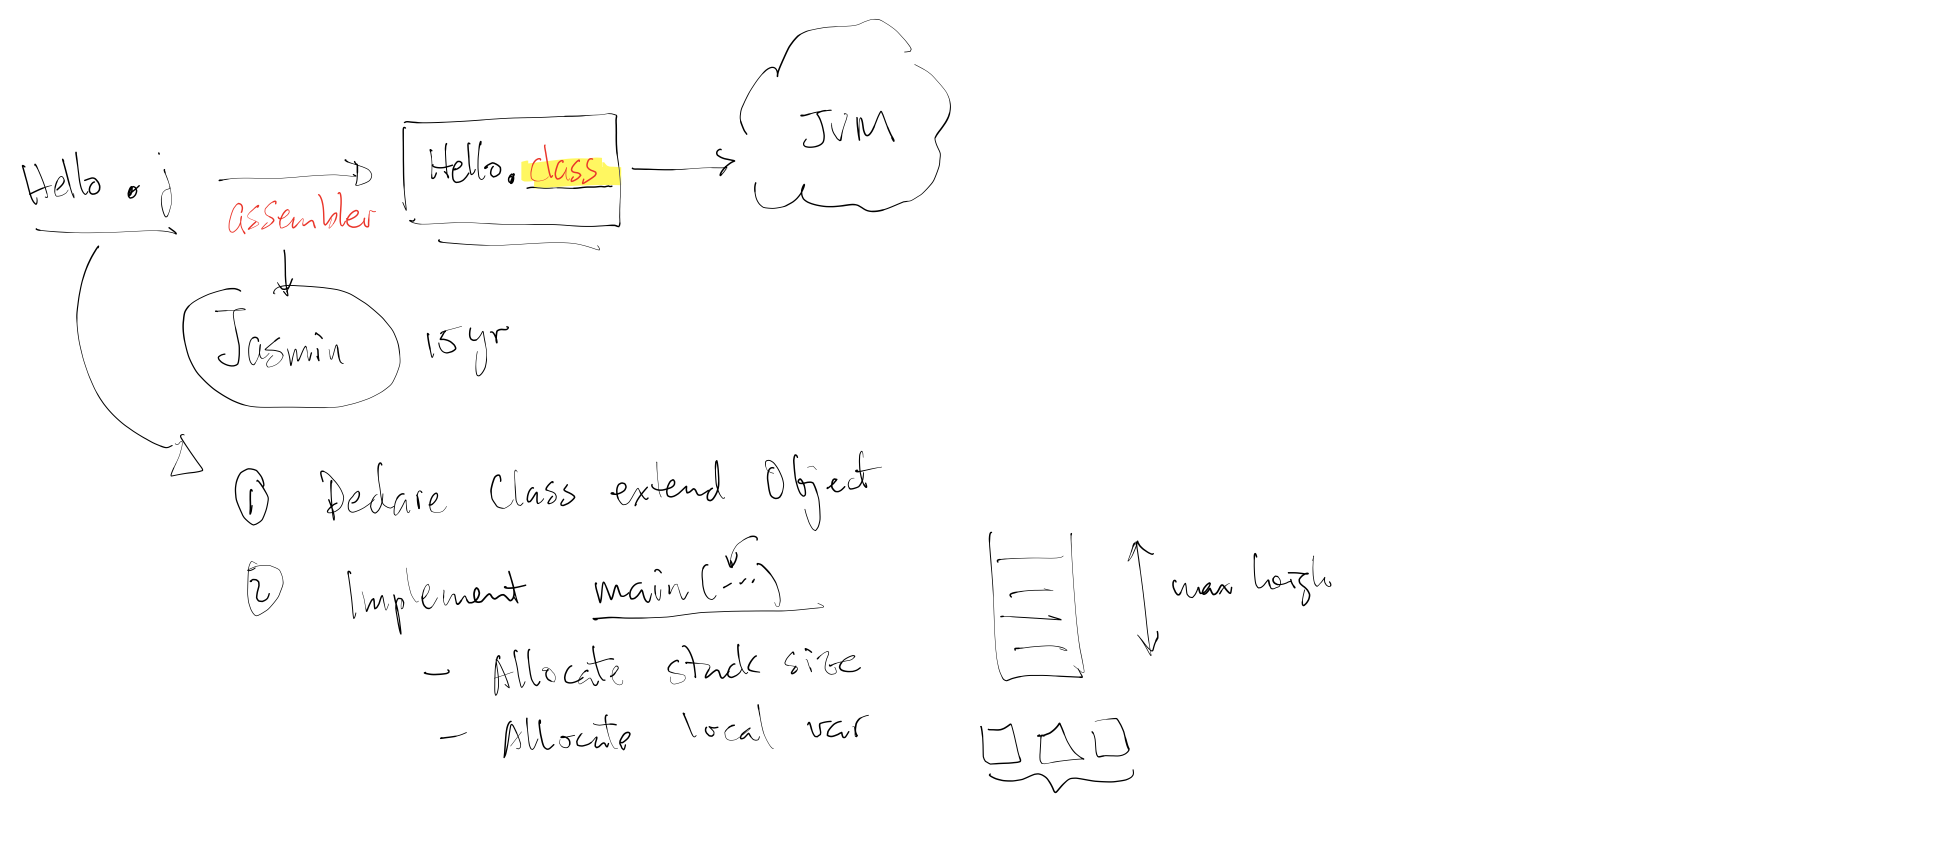 JVM
Hello.j
assembler
Hello.class
Jasmin
15 yr
① Declare Class extend Object
② Implement main(...)
- Allocate stack size
- Allocate local var
max heigh